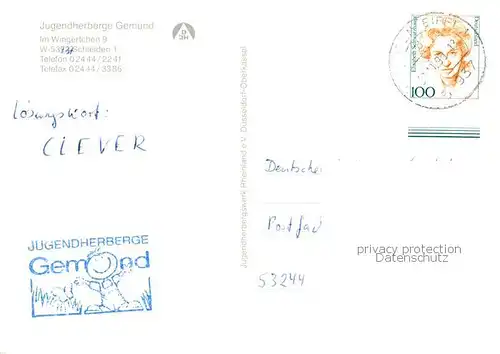 Jugendherberge Gemünd
Im Wingertchen 9
Schleiden 1
Telefon 0 24 44 / 22 41
Telefax 0 24 44 / 33 85
DJH
Lösungswort:
CLEVER
JUGENDHERBERGE
Gemünd
Jugendherbergswerk Rheinland e.V. Düsseldorf-Oberkassel
EIFEL
100
Deutsche
Postfa
53244
privacy protection
Datenschutz